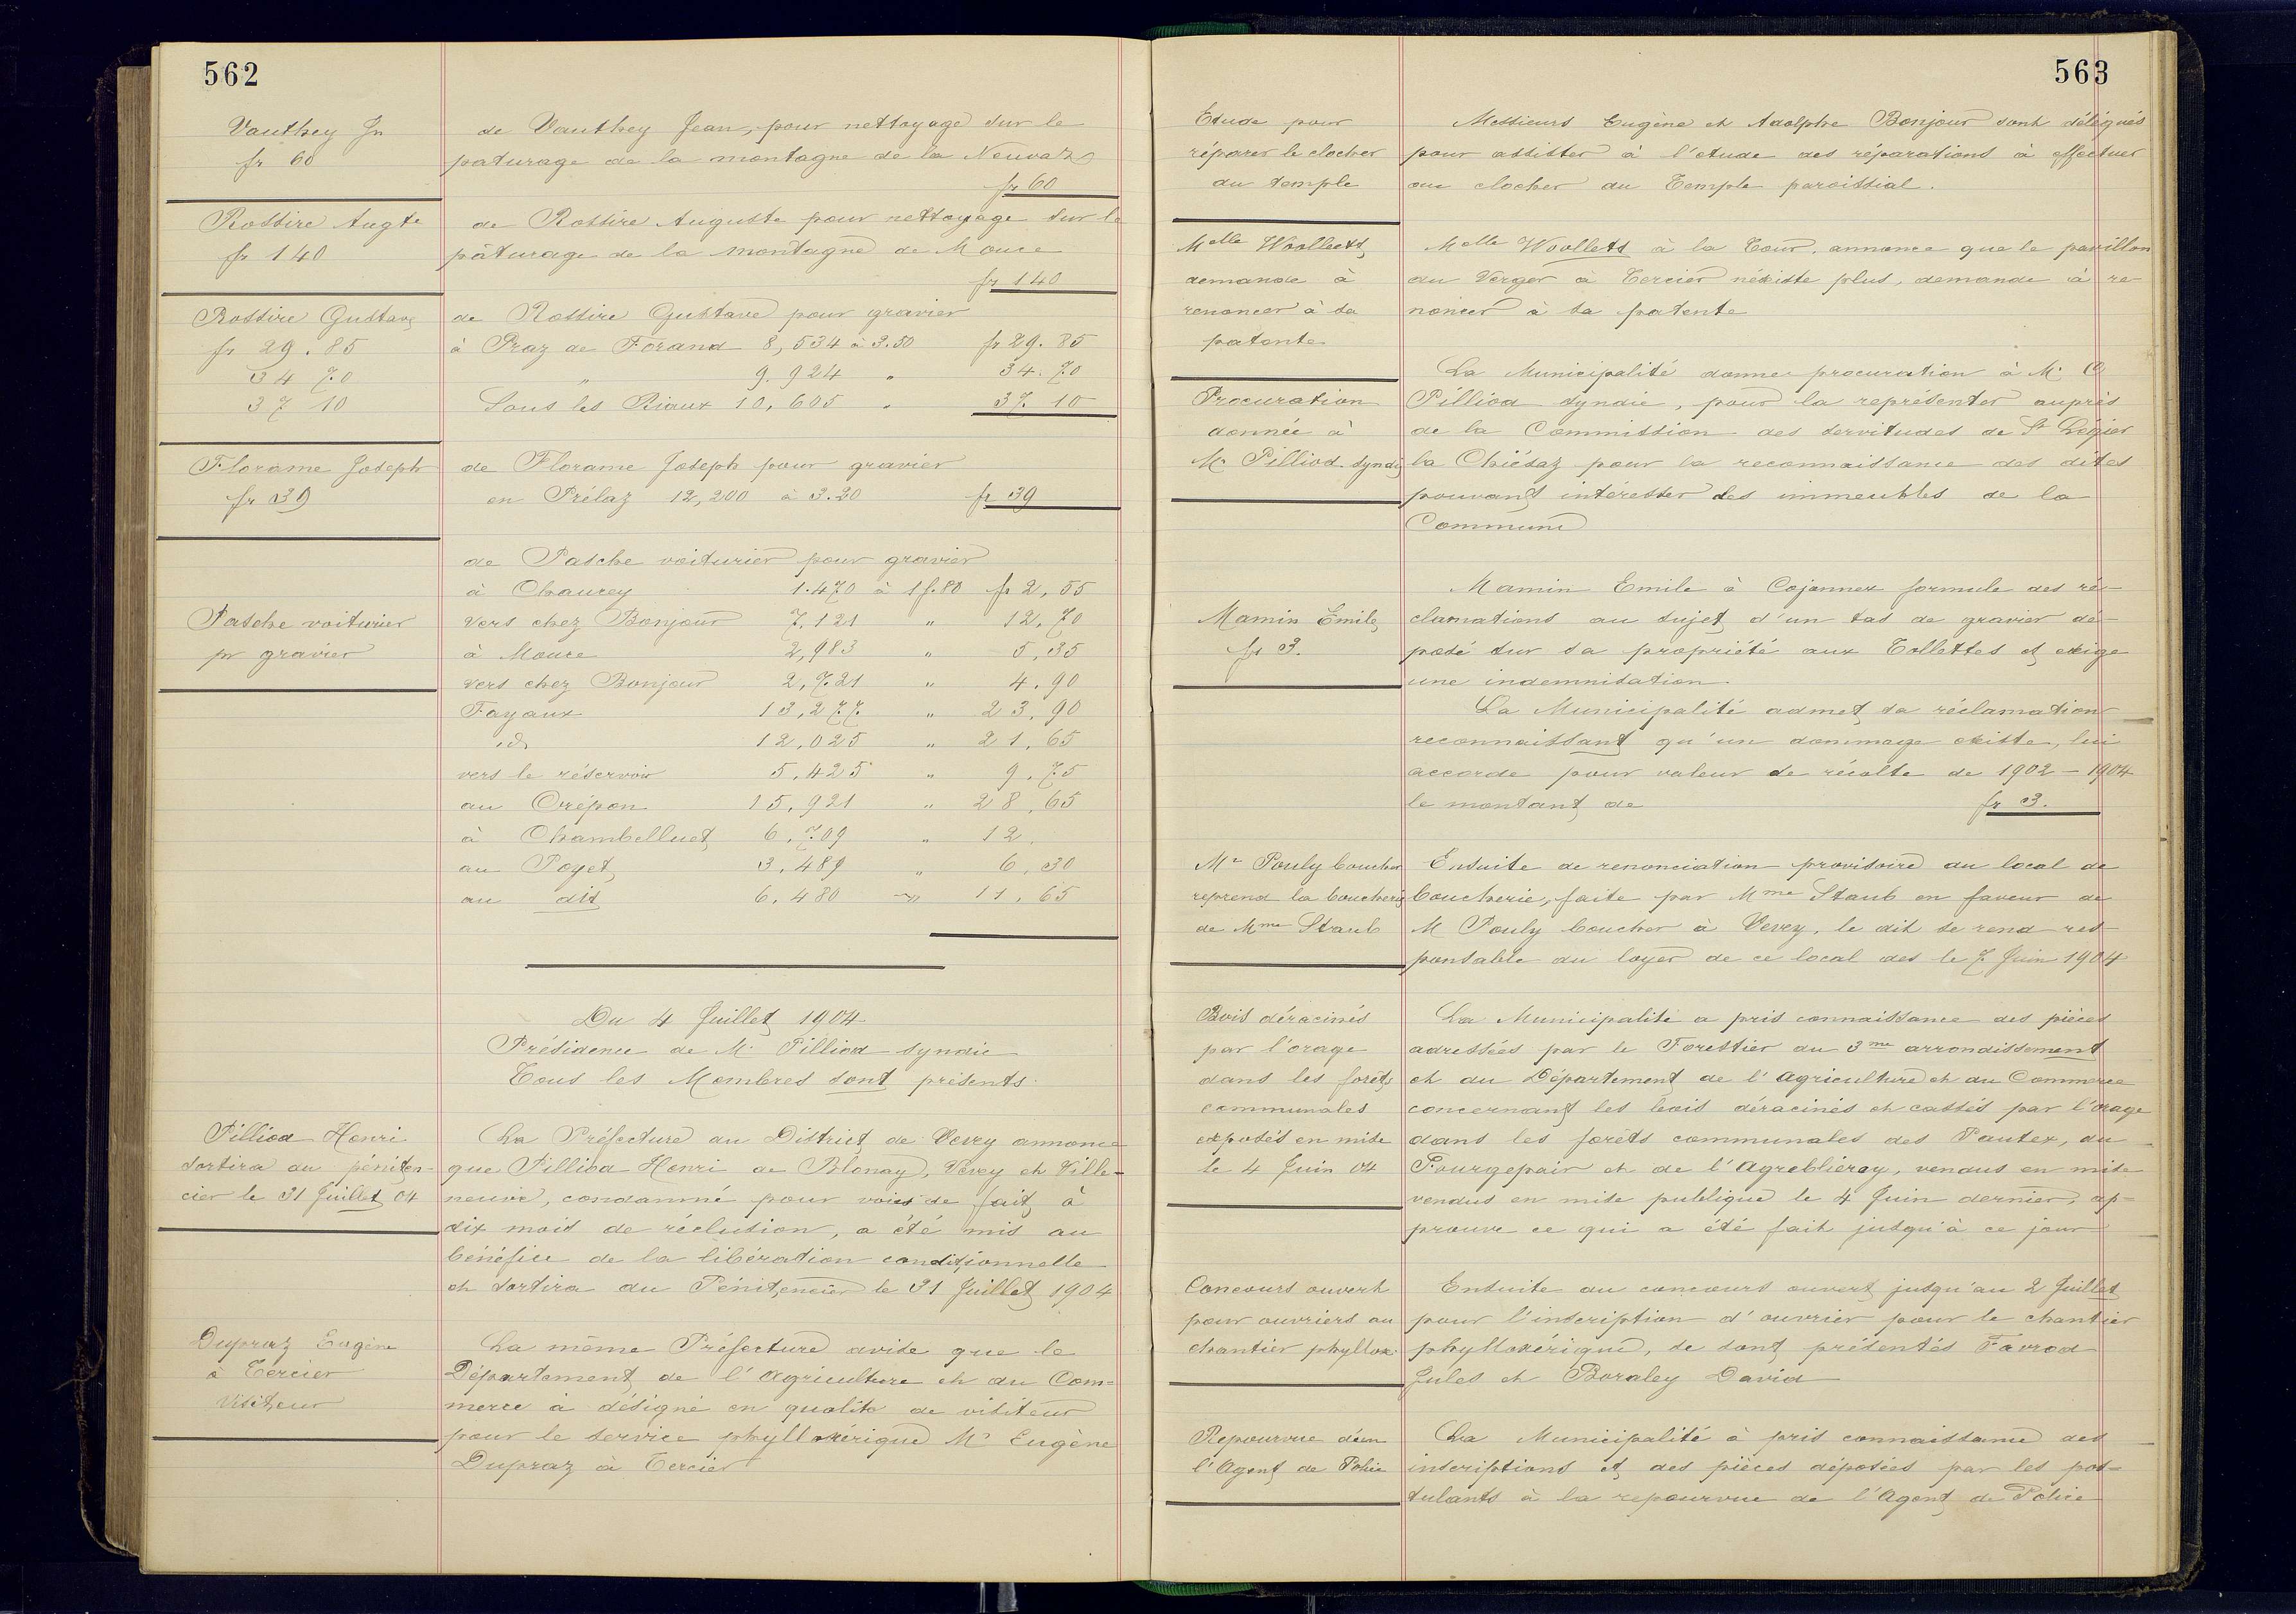 562
Vauthey Jn
fr 60
de Vauthey Jean, pour nettoyage sur le
paturage de la montagne de la Neuvaz
fr 60
Rossire Augte
fr 140
de Rossire Auguste pour nettoyage sur le
pâturage de la montagne de Mouce
fr 140
Rossire Gustave
fr 29.85
34 70
37 10
de Rossire Gustave pour gravier
à Praz de Forand 8,534 à 3.50 fr 29.85
" 9.924 " 34.70
Sous les Riaux 10,605 " 37.10
Florame Joseph
fr 39
de Florame Joseph pour gravier
en Prélaz 12,200 à 3.20 fr 39
Pasche voiturier
pr gravier
de Pasche voiturier pour gravier
à Chaucey 1.470 à 1f.80 fr 2,55
vers chez Bonjour 7,121 " 12,70
à Mouce 2,983 " 5,35
vers chez Bonjour 2,721 " 4.90
Fayaux 13,277 " 23,90
id 12,025 " 21,65
vers le réservoir 5,425 " 9.75
au Crépon 15,921 " 28,65
à Chambelluet 6,709 " 12.
au Poyet 3,489 " 6,30
au dit 6,480 " 11,65
Du 4 Juillet 1904
Présidence de M. Pilliod syndic
Tous les Membres sont présents.
Pilliod Henri
sortira du péniten-
cier le 31 Juillet 04
La Préfecture du District de Vevey annonce
que Pilliod Henri de Blonay, Vevey et Ville-
neuve, condamné pour voies de fait à
dix mois de réclusion, a été mis au
bénéfice de la libération conditionnelle
et sortira du Pénitencier le 31 Juillet 1904
Dupraz Eugène
à Tercier
visiteur
La même Préfecture avise que le
Département de l'Agriculture et du Com=
merce à désigné en qualité de visiteur
pour le service phylloxérique Mr Eugène
Dupraz à Tercier
563
Etude pour
réparer le clocher
du temple
Messieurs Eugène et Adolphe Bonjour sont délégués
pour assister à l'étude des réparations à effectuer
au clocher du Temple paroissial.
Melle Woollets
demande à
renoncer à sa
patente
Melle Woollets à la Tour, annonce que le pavillon
du Verger à Tercier n'éxiste plus, demande à re
noncer à sa patente
Procuration
donnée à
Mr Pilliod. syndic
La Municipalité donne procuration à Mr
Pilliod syndic, pour la représenter auprès
de la Commission des servitudes de St Légier
la Chiésaz pour la reconnaissance des dites
pouvant intéresser des immeubles de la
Commune
Mamin Emile
fr 3.
Mamin Emile à Cojonnex formule des ré-
clamations au sujet d'un tas de gravier dé-
posé sur sa propriété aux Tollettes et exige
une indemnisation.
La Municipalité admet sa réclamation
reconnaissant qu'un dommage existe, lui
accorde pour valeur de récolte de 1902-1904
le montant de fr 3.
Mr Pouly boucher
reprend la boucherie
de Mme Staub
Ensuite de renonciation provisoire du local de
boucherie, faite par Mme Staub en faveur de
M Pouly boucher à Vevey, le dit se rend res-
ponsable du loyer de ce local dès le 7 Juin 1904
Bois déracinés
par l'orage
dans les forêts
communales
exposés en mise
le 4 Juin 04
La Municipalité a pris connaissance des pièces
adressées par le Forestier du 3me arrondissement
et du Département de l'Agriculture et du Commerce
concernant les bois déracinés et cassés par l'orage
dans les forêts communales des Pautex, du
Fourgepair et de l'Agreblieray, vendus en mise
vendus en mise publique le 4 Juin dernier, ap=
prouve ce qui a été fait jusqu'à ce jour
Concours ouvert
pour ouvriers au
chantier phyllox.
Ensuite du concours ouvert jusqu'au 2 Juillet
pour l'inscription d'ouvrier pour le chantier
phylloxérique, se sont présentés Favrod
Jules et Boraley David
Repourvue d'un
l'Agent de Police
La Municipalité à pris connaissance des
inscriptions et des pièces déposées par les pos=
tulants à la repourvue de l'Agent de Police